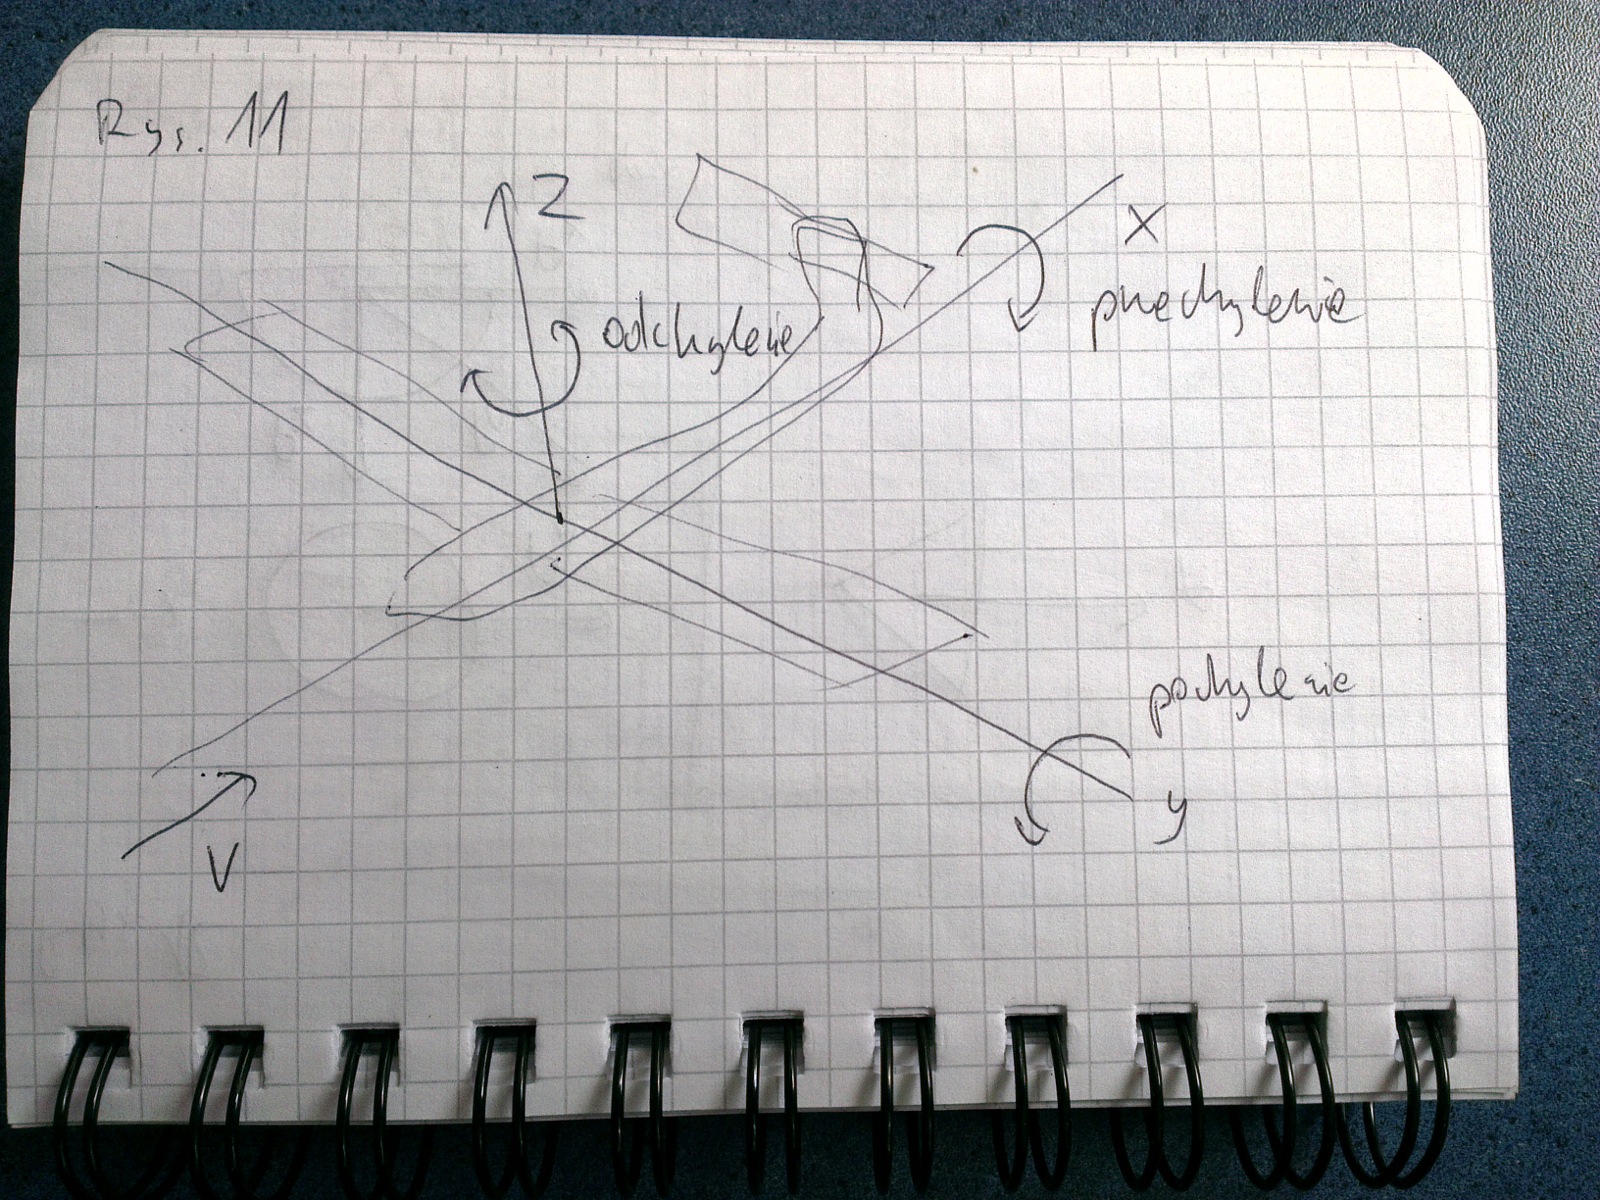 Rys. 11
Z
X
odchylenie
przechylenie
pochylenie
y
V